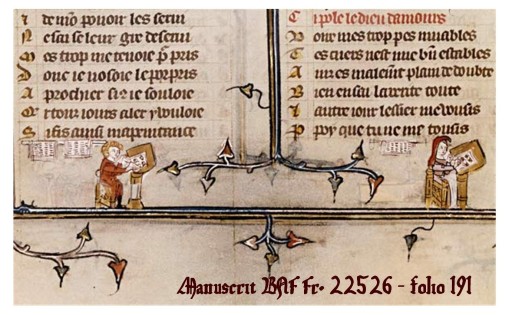 I de mō pouoir les serui
N e sai se leur gre deserui
M es trop me tenoie p̄ pris
D onc ie nosoie le porpris
A prochier si 9 ie souloie
tour iours aler y vouloie
S i fis ainsi ma penitance
C le dieu damours
mes trop pes muables
T es cuers nest mie bñ estables
A ins es malemt plain de doubte
B ien en sai la uerite toute
L autre iour lessier me uousis
P por que tu ne me tousis
Manuscrit BNF Fr. 22526 - folio 191